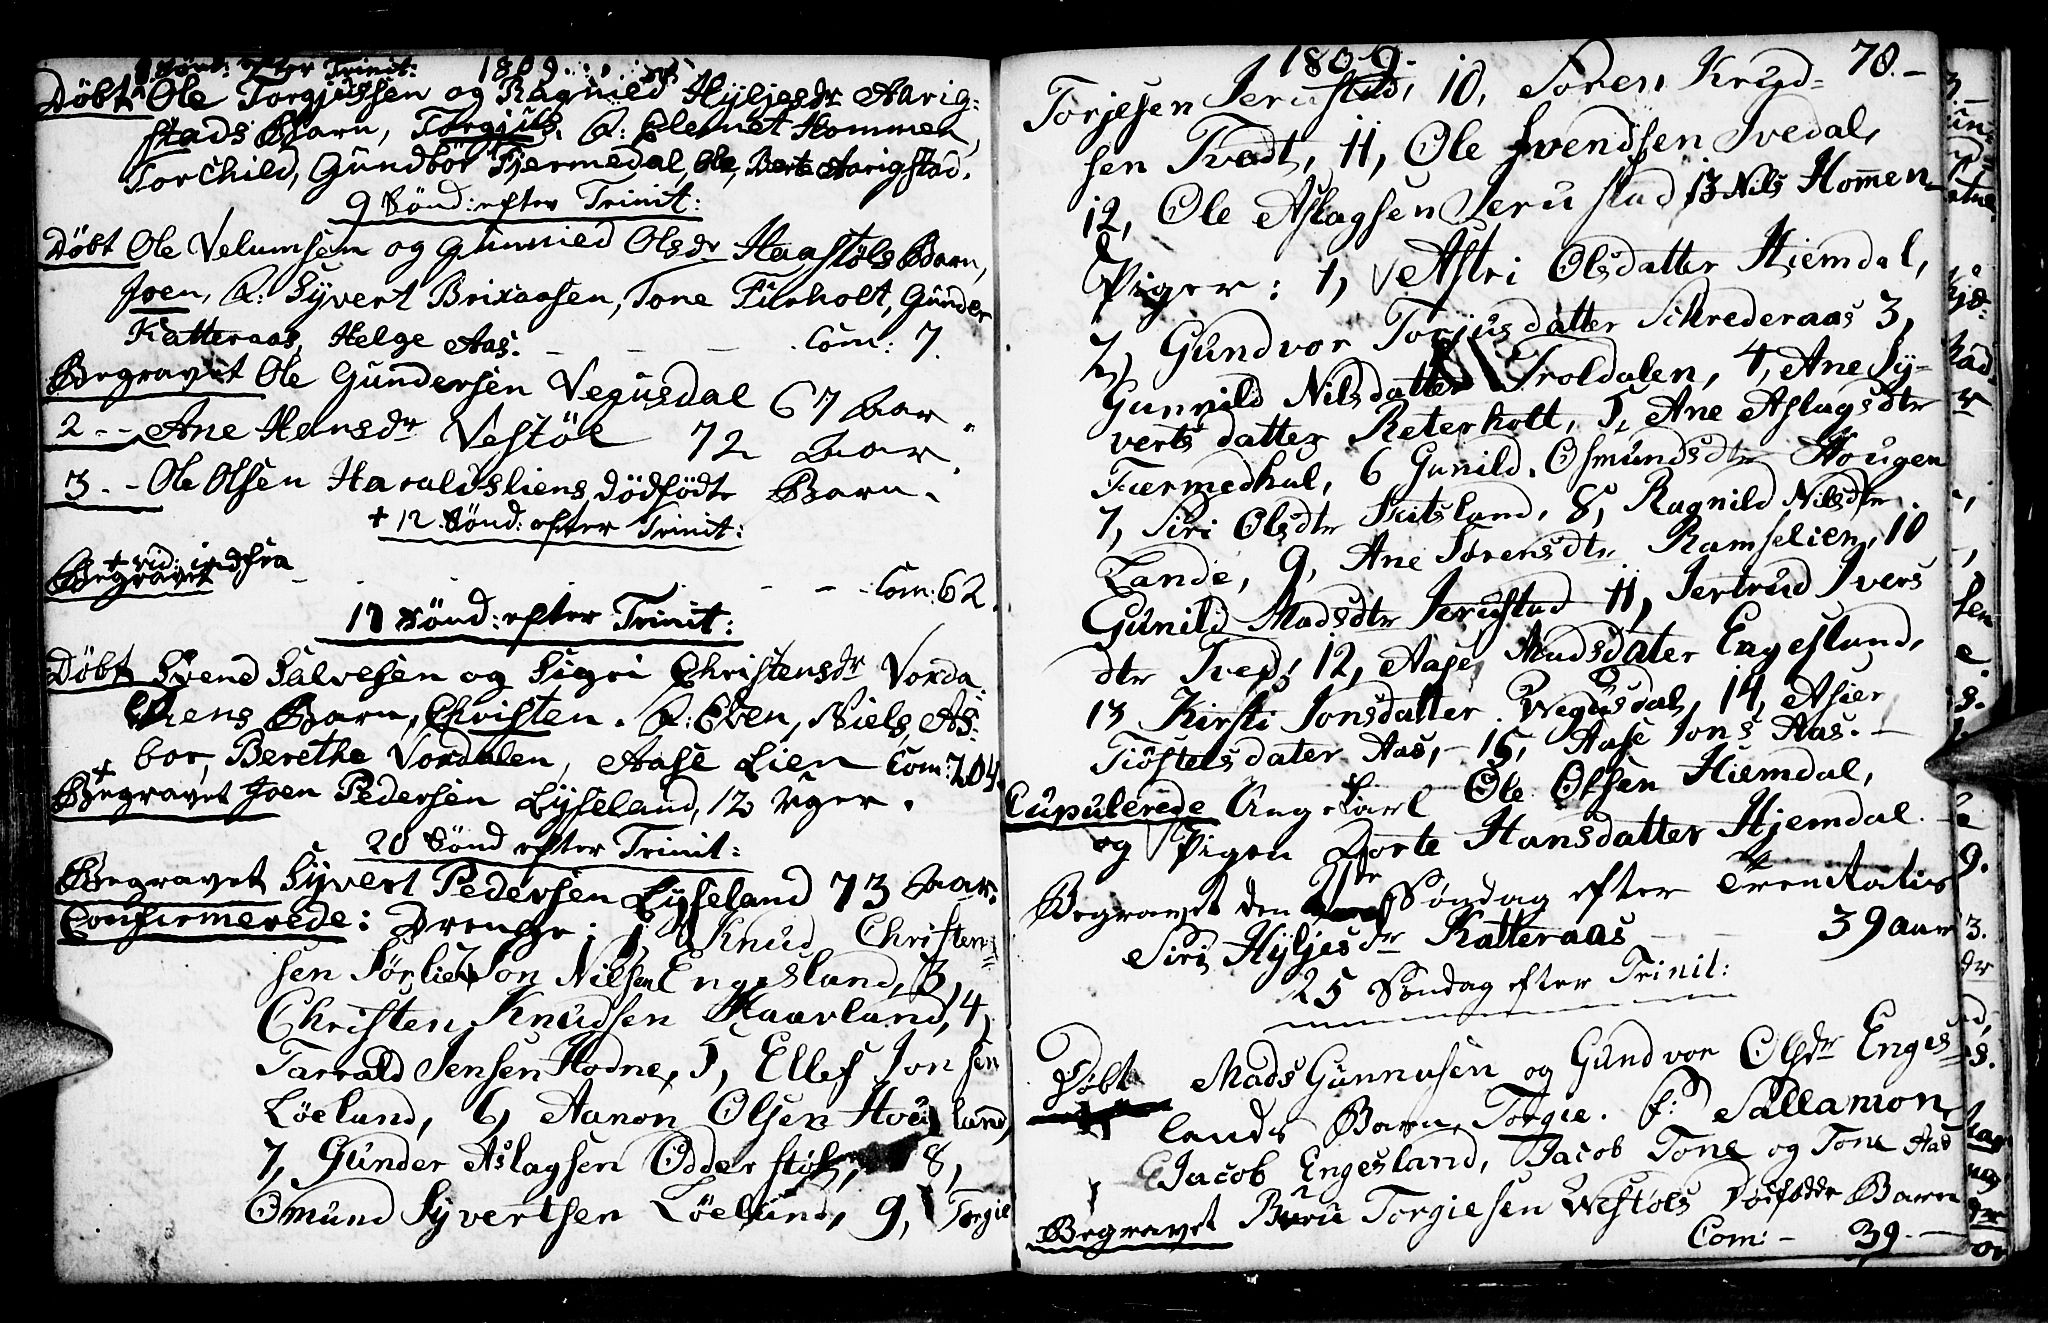 8 Sönd: efter Trinit: 1809
Döbt Ole Torgjussen og Ragnild Hyljesdr Aarig-
stads Barn, Torgjuls. F: Elernet Hommen,
Torchild, Gundbör Fjermedal, Ole, Berte Aarigstad.
9 Sönd: efter Trinit:
Döbt Ole Velumsen og Gunnild Olsdr Haastöls Barn,
Joen, F: Syvert Brixaasen, Tone Furholt, Gunder
Katteraas, Helge Aas. - - - Com: 7.
Begravet Ole Gundersen Vegusdal 67 Aar.
2 - - Ane Hansdr Vestöl 72 Aar.
3. - Ole Olsen Haraldsliens dödfödte Barn.
+ 12 Sönd: efter Trinit:
Begravet + vid: indfra - - - Com: 62.
17 Sönd: efter Trinit:
Döbt Svend Salvesen og Sigri Christensdr Vorda-
liens Barn, Christen. F: Even, Niels, As-
bor, Berethe Vordalen, Aase Lien Com: 204.
+ Begravet Joen Pedersen Lyseland, 12 Uger.
20 Sönd efter Trinit:
Begravet Syvert Pedersen Lyseland 73 Aar.
Confirmerede: Drenge: 1, Knud Christen-
sen Sörlie 2, Jon Nilsen Engesland, 3,
Christen Knudsen Haavland, 4,
Tarrald Jensen Hodne, 5, Ellef Jonsen
Löeland, 6, Aanon Olsen Hovland,
7, Gunder Aslagsen Odderstöl, 8,
Omund Syvertsen Löeland, 9, Torgie
1809. 70. -
Torjesen Jerustad, 10, Soren Knud-
sen Tvedt, 11, Ole Svendsen Ivedal,
12, Ole Aslagsen Jerustad 13 Nils Homen
Piger: 1, Astri Olsdatter Hiemdal,
2, Gundvor Torjusdatter Schrederaas 3,
Gunnild Nilsdatter Troldalen, 4, Ane Sy-
vertsdatter Reterholt, 5, Ane Aslagsdtr
Færmedhal, 6 Gunild Osmundsdtr Hougen
7, Siri Olsdtr Skitsland, 8, Ragnild Nilsdtr
Lande, 9, Ane Sørensdtr Ramselien, 10
Gunild Madsdtr Jerustad 11, Jertrud Ivers
dtr Tved, 12, Aase Madsdater Engesland,
13 Kirsti Jonsdatter Wegusdal, 14, Asier
Tiöstelsdater Aas, - 15, Aase Jons Aas. -
Cupulerede Ungekarl Ole Olsen Hiemdal,
og Pigen Dorte Hansdatter Hjemdal. -
Begravet den 21de Søndag efter Trenitatis
Siri Hyljesdr Katteraas - - 39 aar
25 Søndag efter Trinit:
Døbt Mads Gunnusen og Gundvor Olsdr Enges-
lands Barn, Torgie. f: Sallamon,
Jacob Engesland, Jacob Tone og Tone Aas
Begravet Boru Torgiesen Westøls Dødfødde Barn
Com: - 39. -